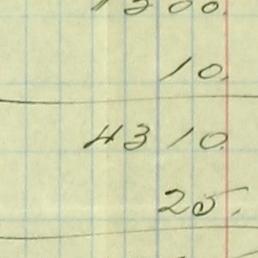 10.
4310.
25.